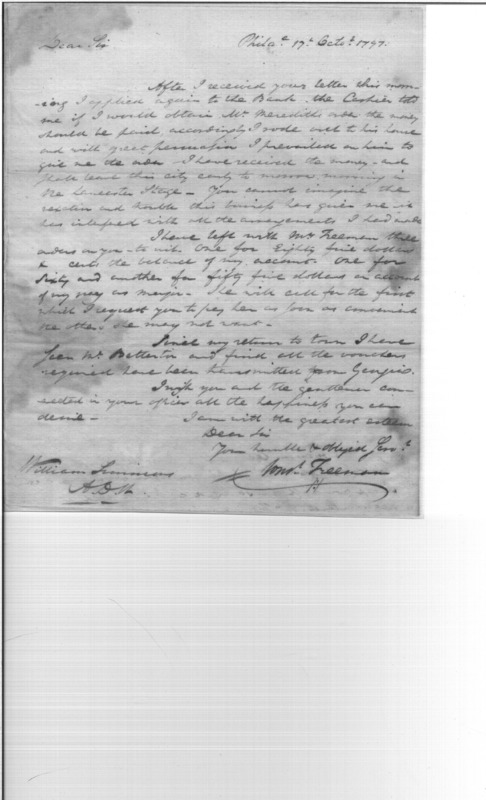 Dear Sir
Philaa. 17th. Octor. 1797.
After I received your letter this morn-
-ing I applied again to the Bank. the Cashier told
me if I would obtain Mr. Meredith's order the money
should be paid, accordingly I rode out to his house
and with great persuasion I prevailed on him to
give me the order I have received the money and
shall leave this city early to morrow morning in
the Lancaster Stage - You cannot imagine the
vexation and trouble this business has given me it
has interfered with all the arrangements I had made
I have left with Mrs Freeman three
orders on you - to wit. One for Eighty five dollars
& cents the balance of my account. One for
Sixty and another for fifty five dollars on account
of my pay as major. She will call for the first
which I request you to pay her as soon as convenient
the other she may not want.
Since my return to town I have
seen Mr. Betterton and find all the vouchers
required have been transmitted from Georgia.
I wish you and the gentlemen con-
nected in your office all the happiness you can
desire - I am with the greatest esteem
Dear Sir
Your humble & Obyed Servt.
Const. Freeman
William Simmons
A.D.W.